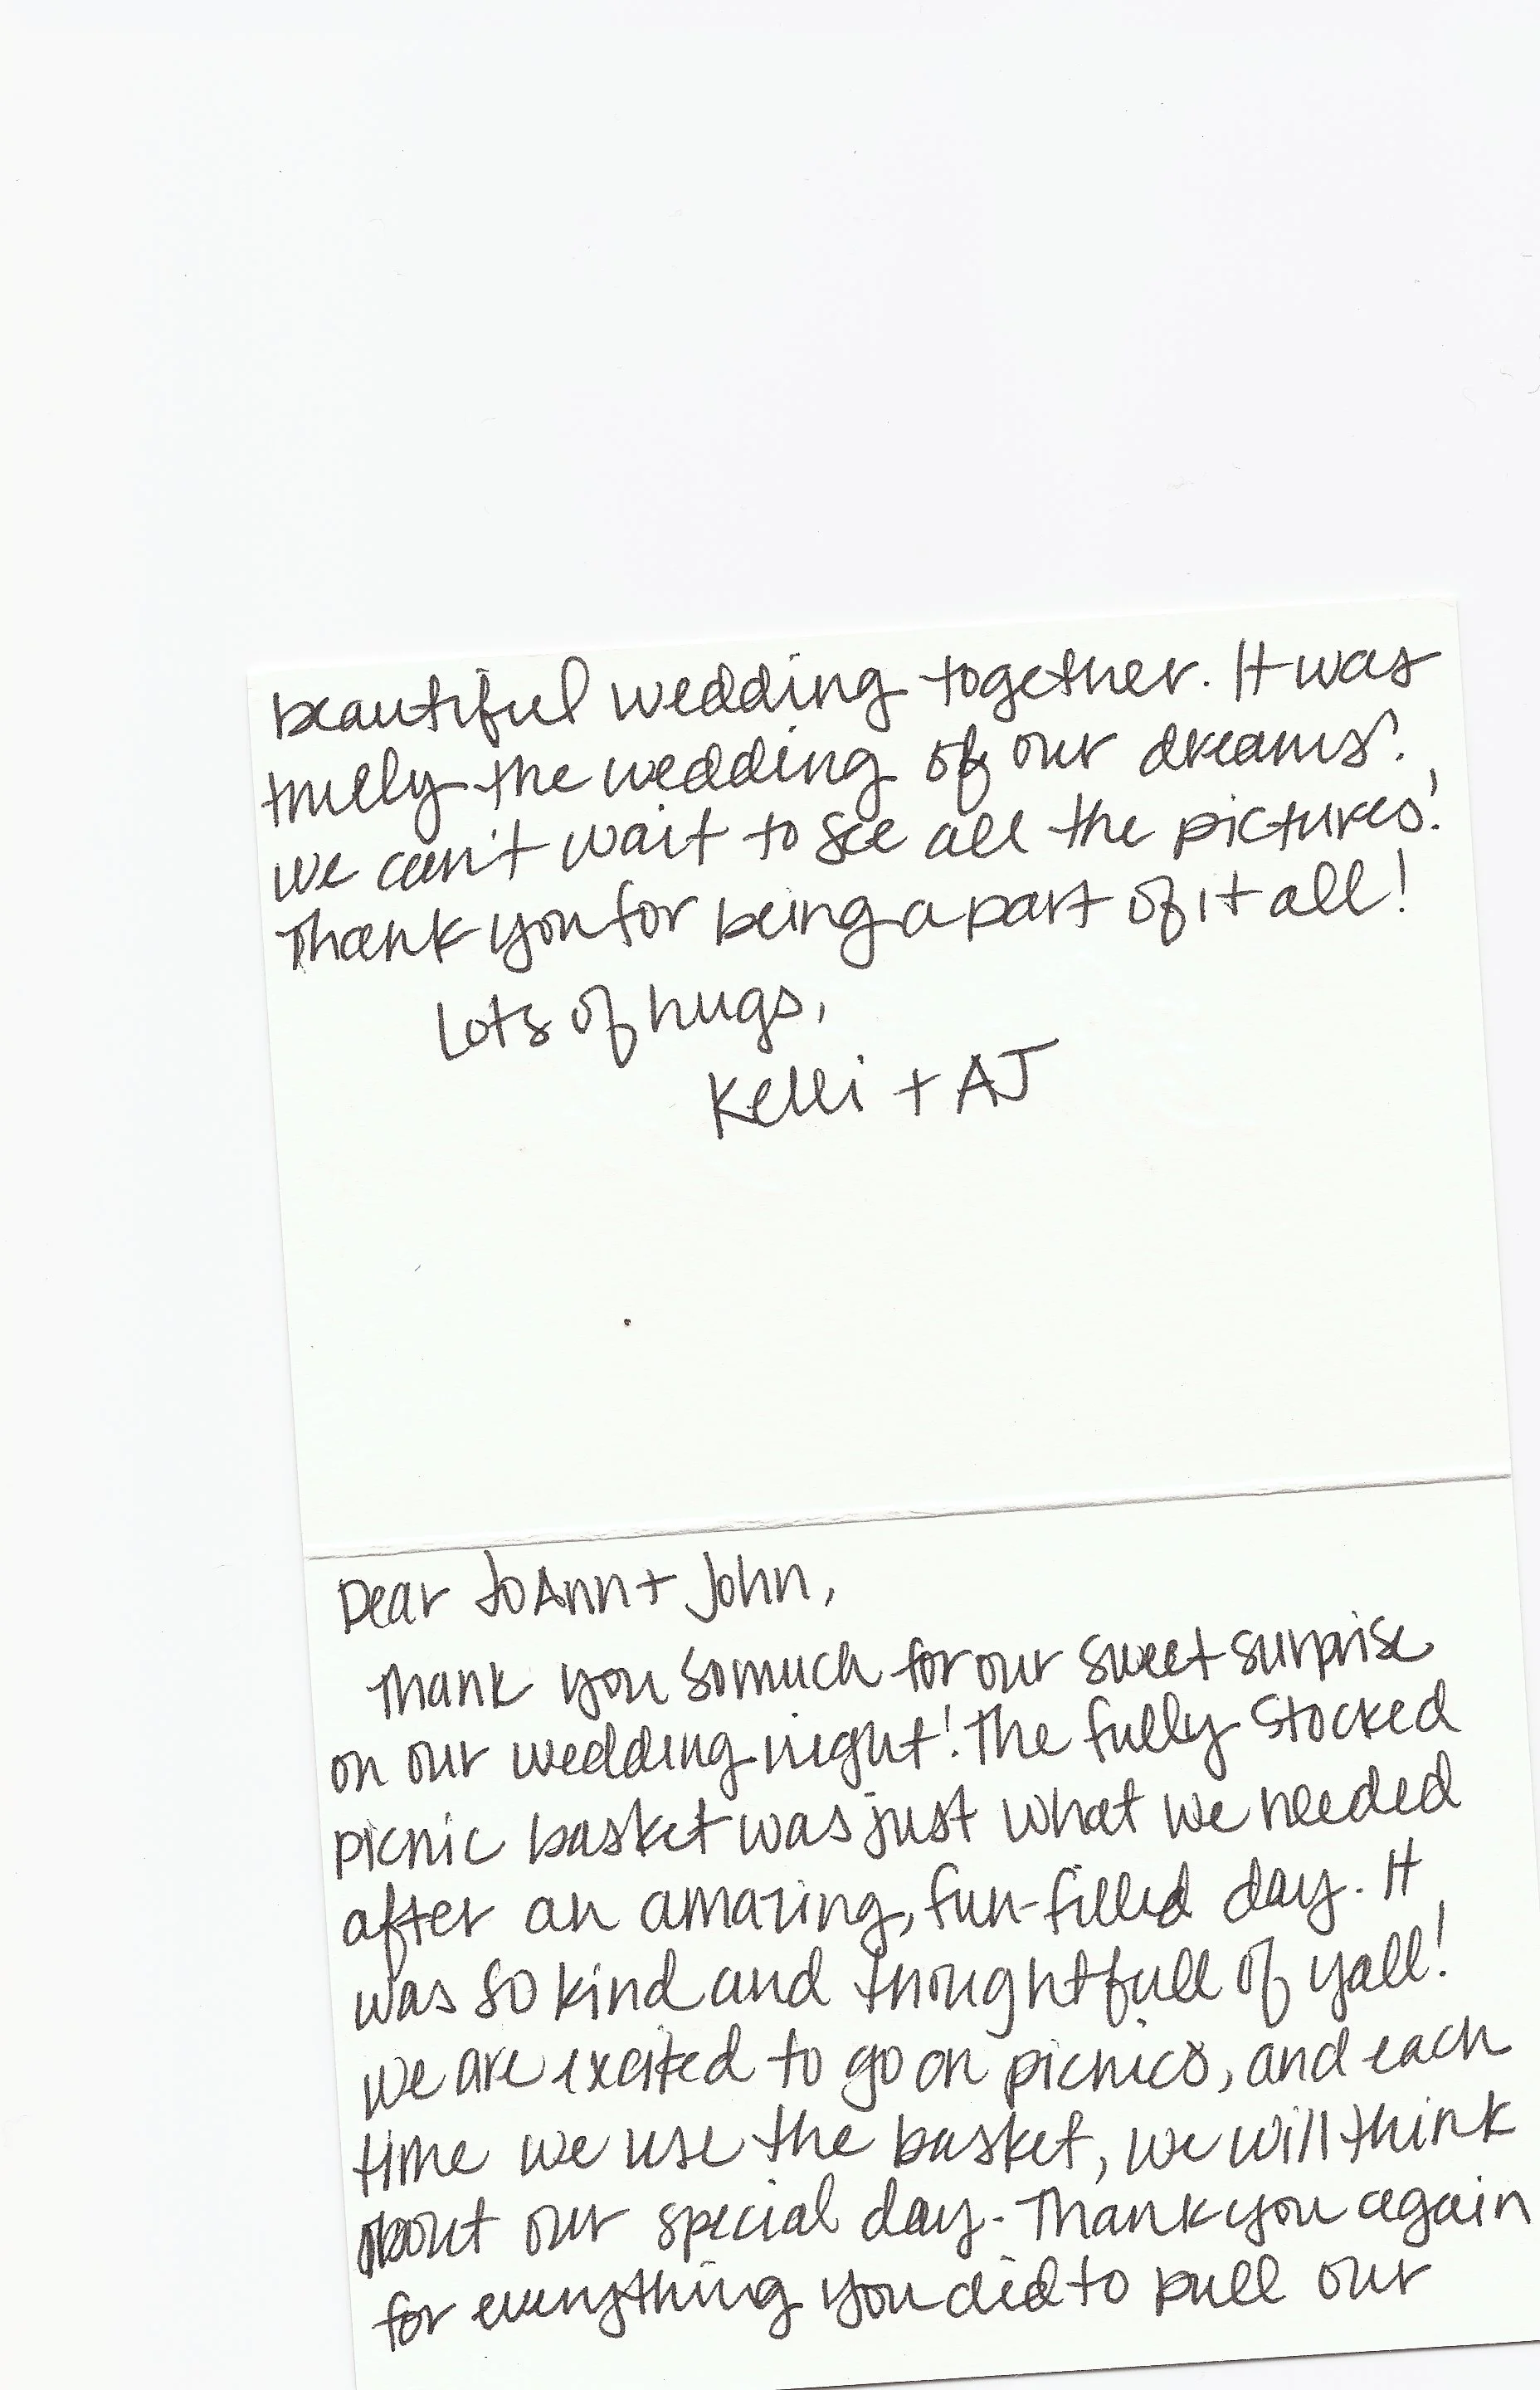 Dear JoAnn + John,
Thank you so much for our sweet surprise
on our wedding night! The fully stocked
picnic basket was just what we needed
after an amazing, fun-filled day. It
was so kind and thoughtfull of yall!
we are excited to go on picnics, and each
time we use the basket, we will think
about our special day. Thank you again
for everything you did to pull our
beautiful wedding together. It was
truely the wedding of our dreams!
we can't wait to see all the pictures!
Thank you for being a part of it all!
Lots of hugs,
Kelli + AJ